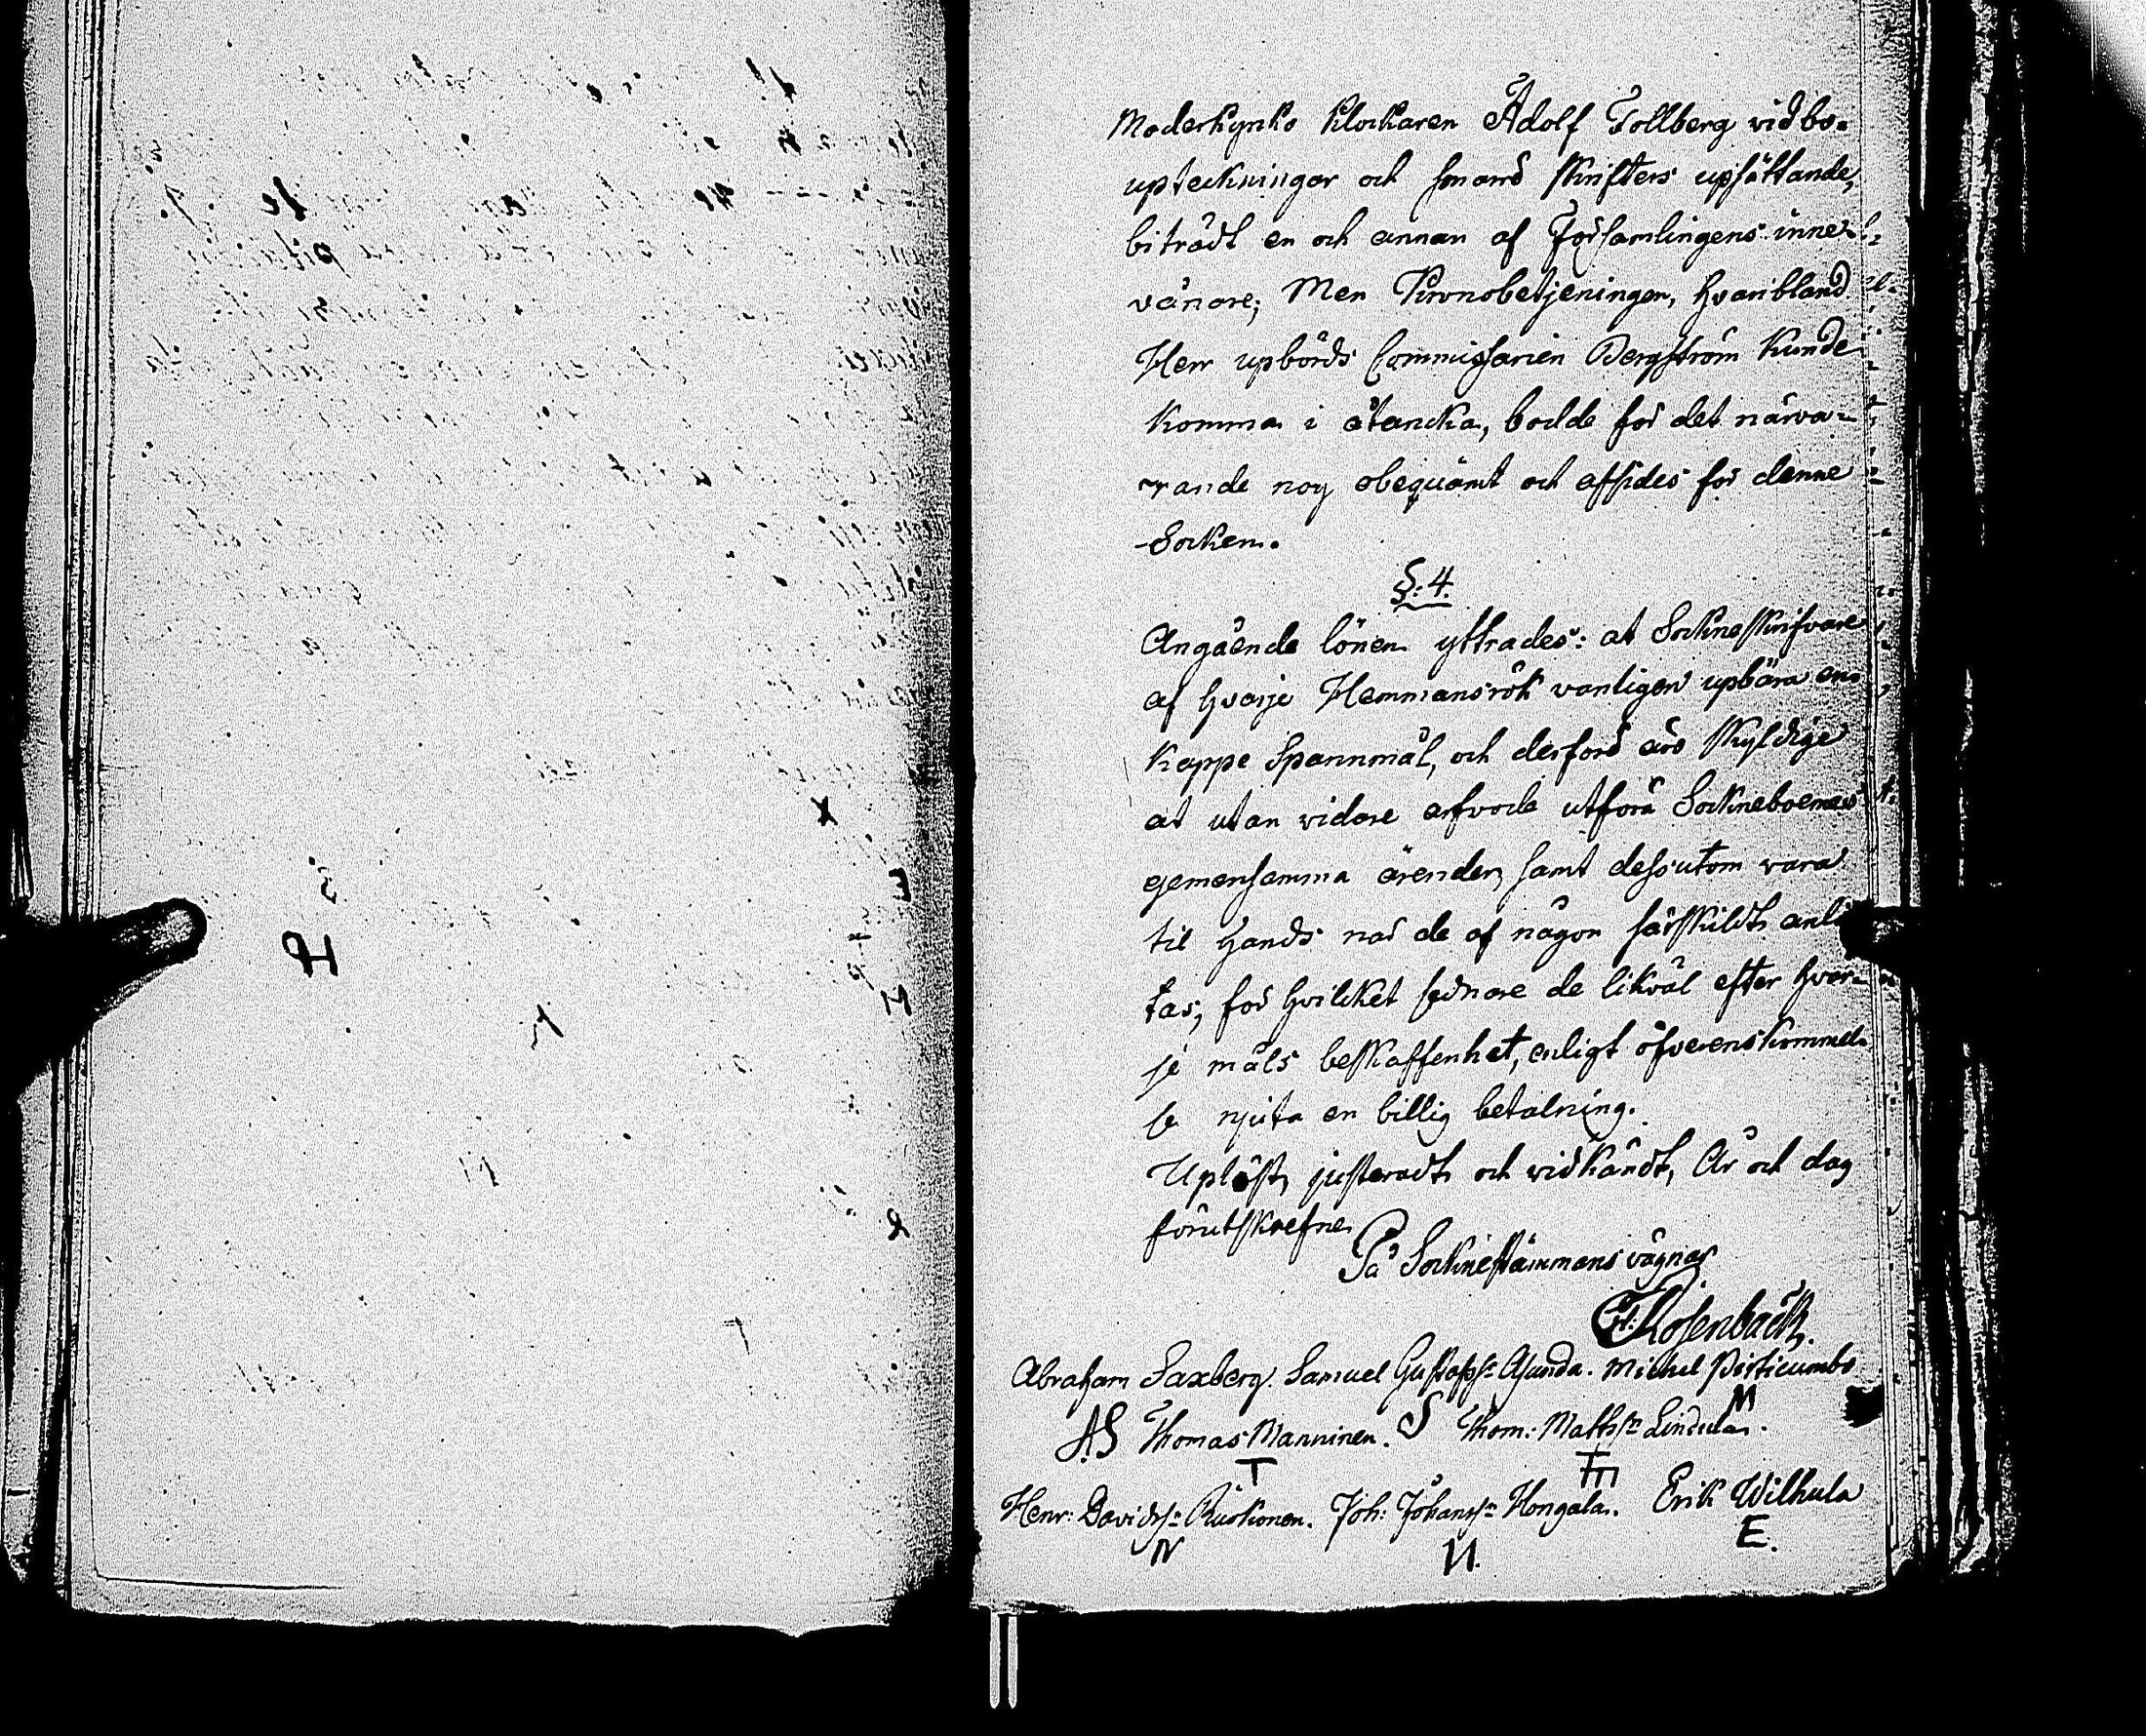 Moderkyrko Klockaren Adolf Tollberg vid bo-
upteckningar och smärre skrifters upsättande,
biträdt en och annan af Församlingens inne-
vånare; Men Kronobetjeningen, hvaribland
Herr upbörds Commissarien Bergström kunde
komma i åtancka, bodde för det närva-
rande nog obequämt och afsides för denne
Socken.
§: 4.
Angående lönen yttrades: at Sockneskrifvare
af hvarje Hemmansrök vanligen upbära en
kappe Spannmål, och derföre äro skyldige
at utan vidare arfvode utföra Sockneboernes
gemensamma ärender, samt dessutom vara
til hands när de af någon särskildt anli-
tas, för hvilcket sednare de likväl efter hvar-
je måls beskaffenhet, enligt öfverenskommel-
se njuta en billig betalning.
Upläst, justeradt och vidkändt, År och dag
förutskrefne.
På Socknestämmans vägnar
Rosenbäck.
Abraham Saxberg. Samuel Gustafss: Asunda. Michel
AS S M
Thomas Manninen. Thom: Mattss:n Lindula.
T TM
Henr: Davidss: Johanss:n Hongala. Erik Wilhula
N N. E.